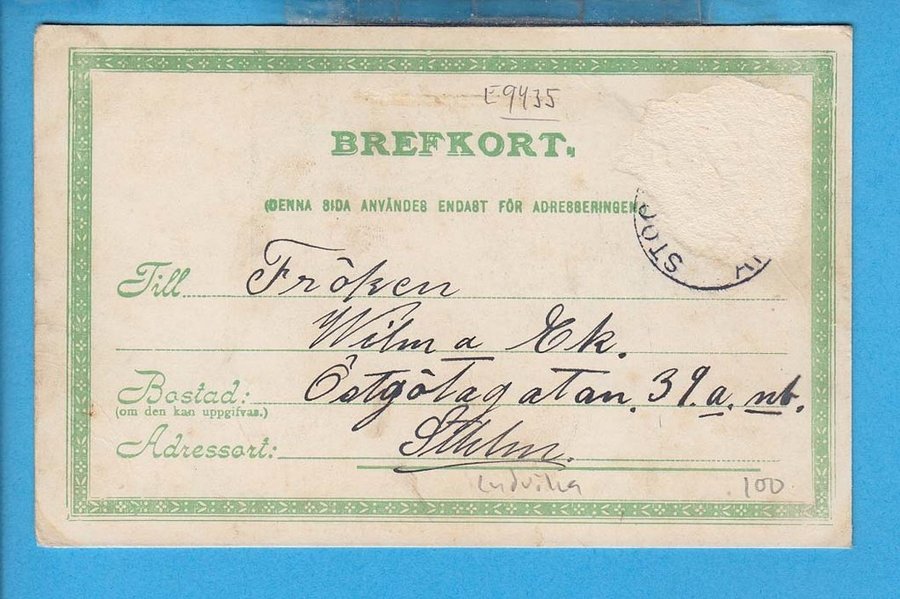 E9435
BREFKORT.
(DENNA SIDA ANVÄNDES ENDAST FÖR ADRESSERINGEN
STO
Till Fröken
Wilma Ek.
Bostad: Östgötagatan. 39.a. nb.
(om den kan uppgifvas.)
Adressort: Sthlm.
Ludvika 100